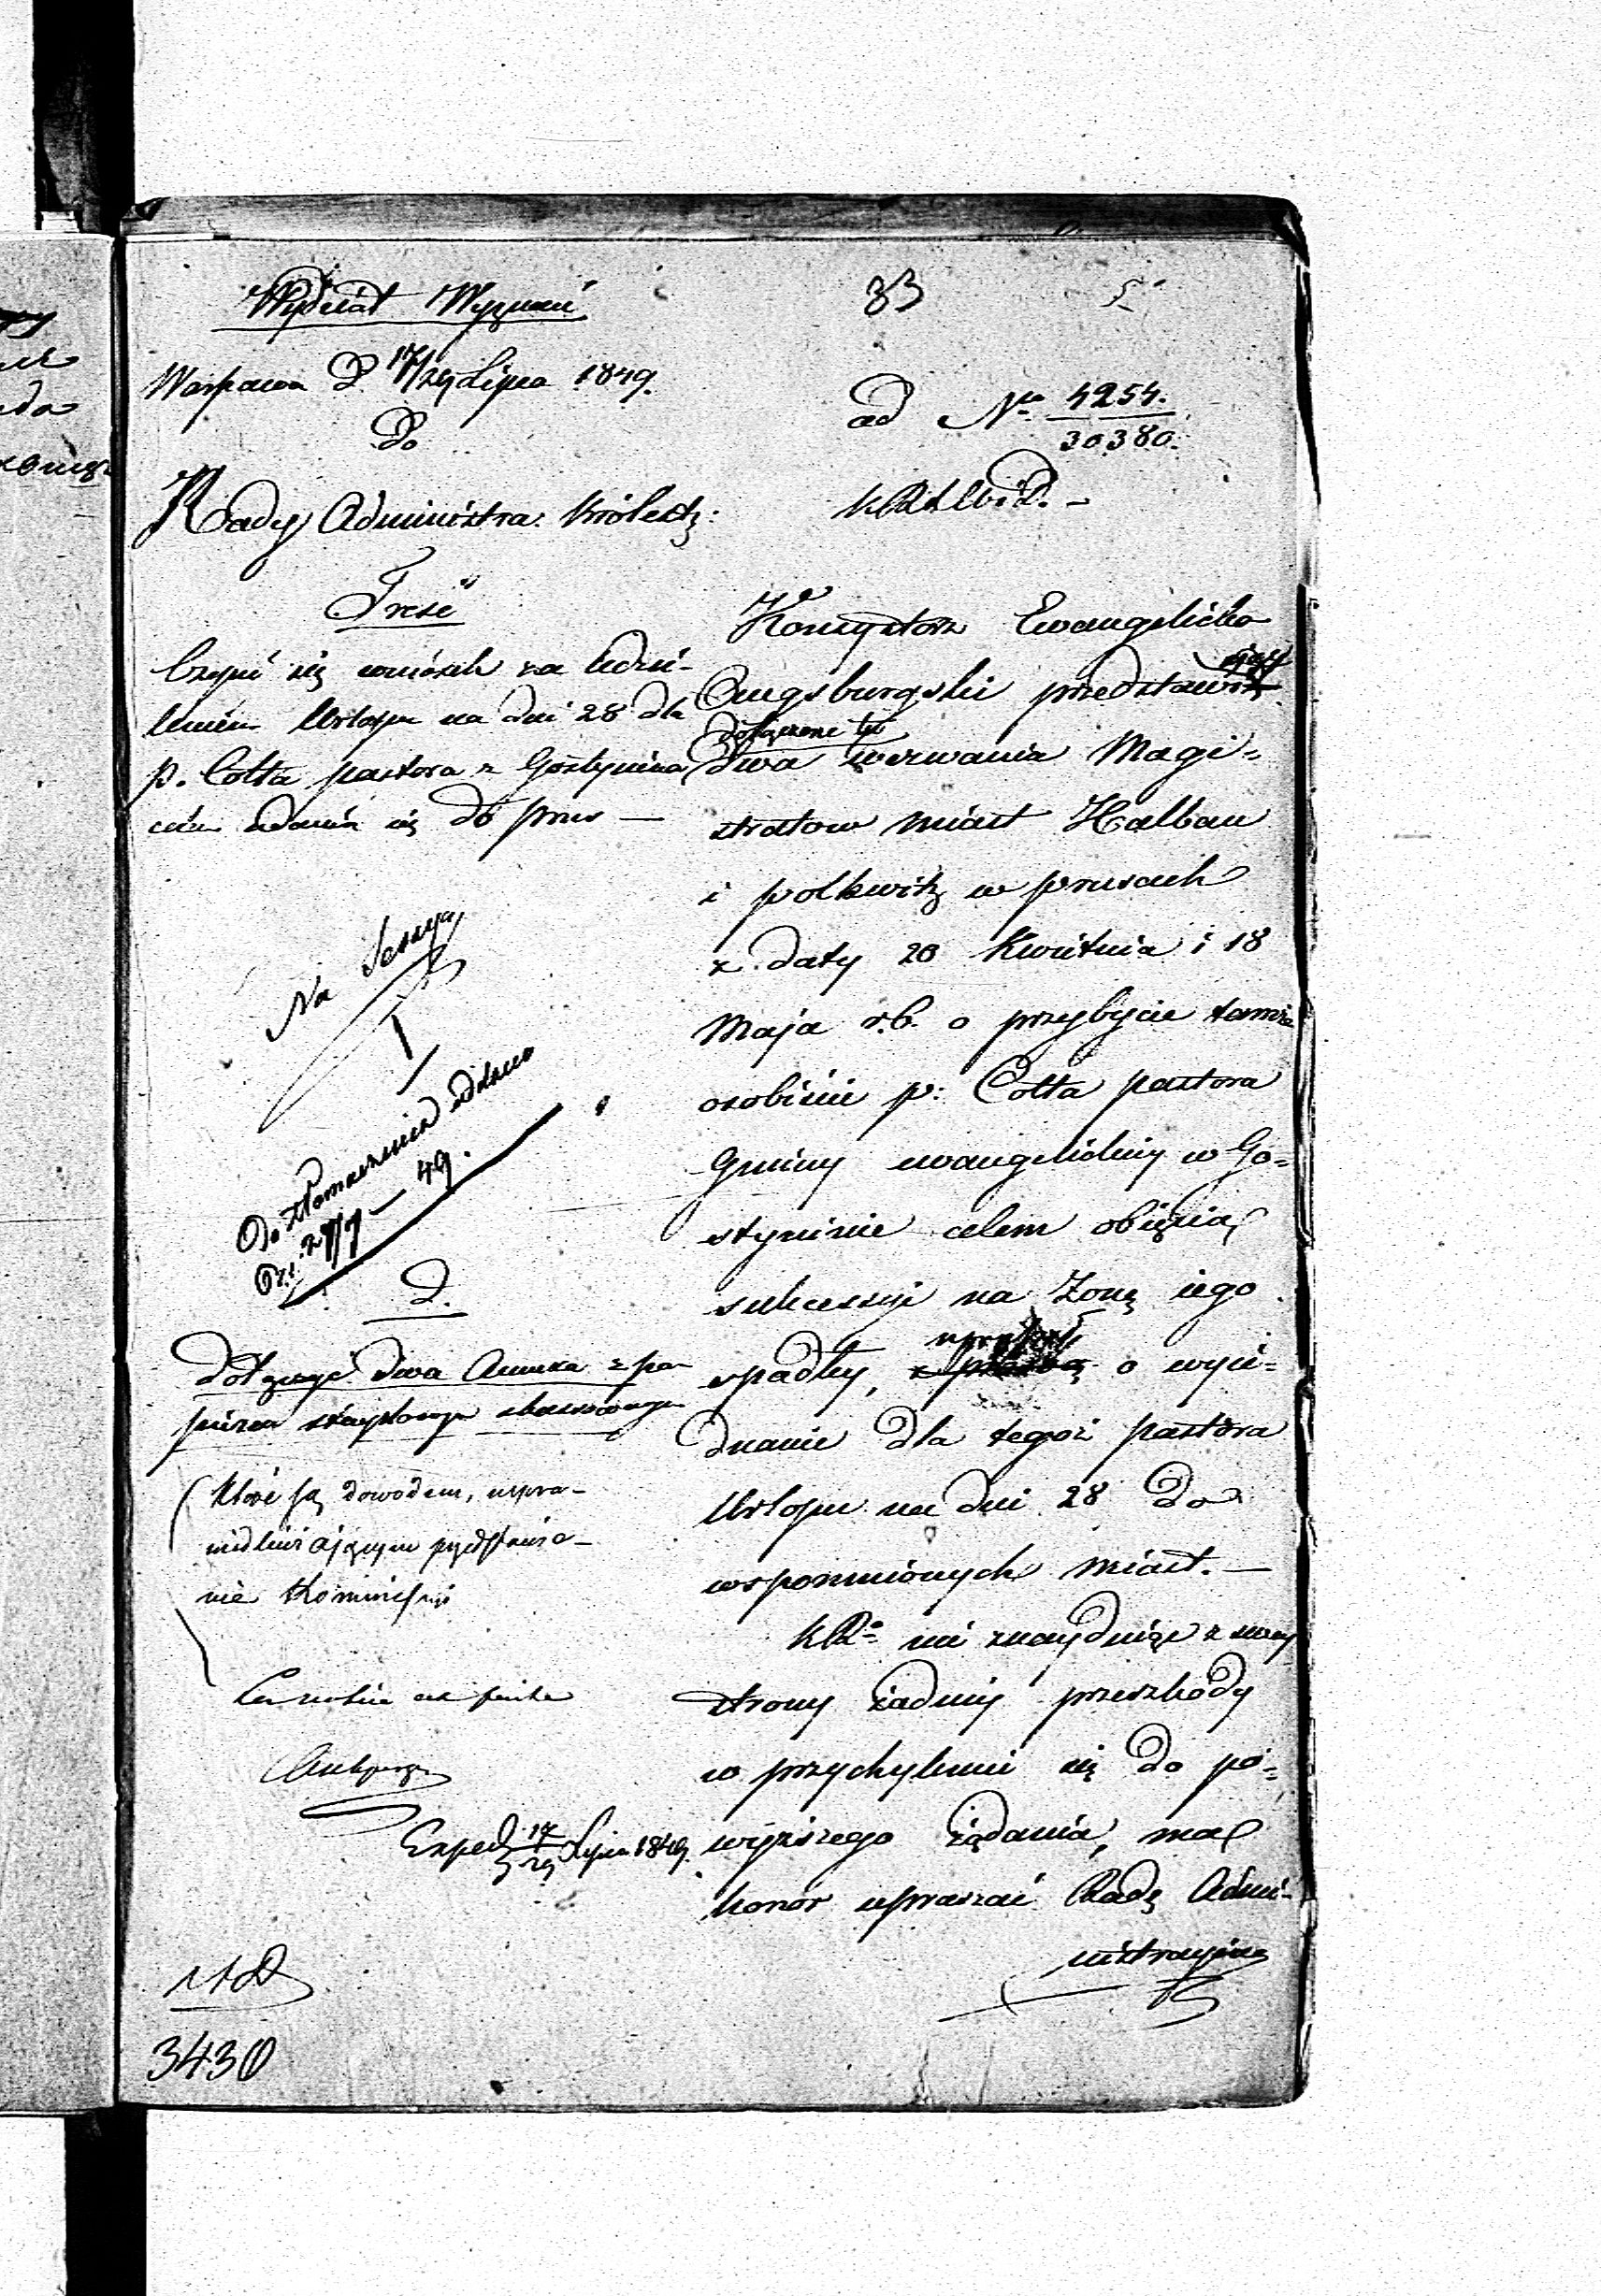 Wydział Wyznań
83
Warszawa D 17/29 Lipca 1849.
Do
ad Nr 4254.
30380.
Rady Administra: Królestz:
Treść
Czyni się wniosek za udzie-
leniem Urlopu na dni 28 dla
p. Cotta pastora z Gostynina
celem udania się do Prus —
Na Sessyą
Do tłomaczenia oddano
D. 27/7 — 49.
D.
Dołączyć dwa Annexa z pa
pieru
które są dowodem, uspra-
wiedliwiającym przedstawie-
nie Kommissyi
Exped: 17/29 Lipca 1849.
3430
Konsystorz Ewangelicko
Augsburgski przedstawiając
dołączone tu
dwa wezwania Magi=
stratow miast Halbau
i Polkwitz w Prusach
z daty 20 Kwietnia i 18
Maja r.b. o przybycie tamże
osobiście p: Cotta pastora
Gminy ewangelickiey w Go=
styninie celem obięcia
sukcessyi na żonę iego
spadłey, o wyie=
dnanie dla tegoż pastora
Urlopu na dni 28 do
wspomnionych miast. —
KR. nie znayduiąc z swey
strony żadney przeszkody
w przychyleniu się do po=
wyższego żądania, ma
honor upraszać Radę Admi-
nistracyjną